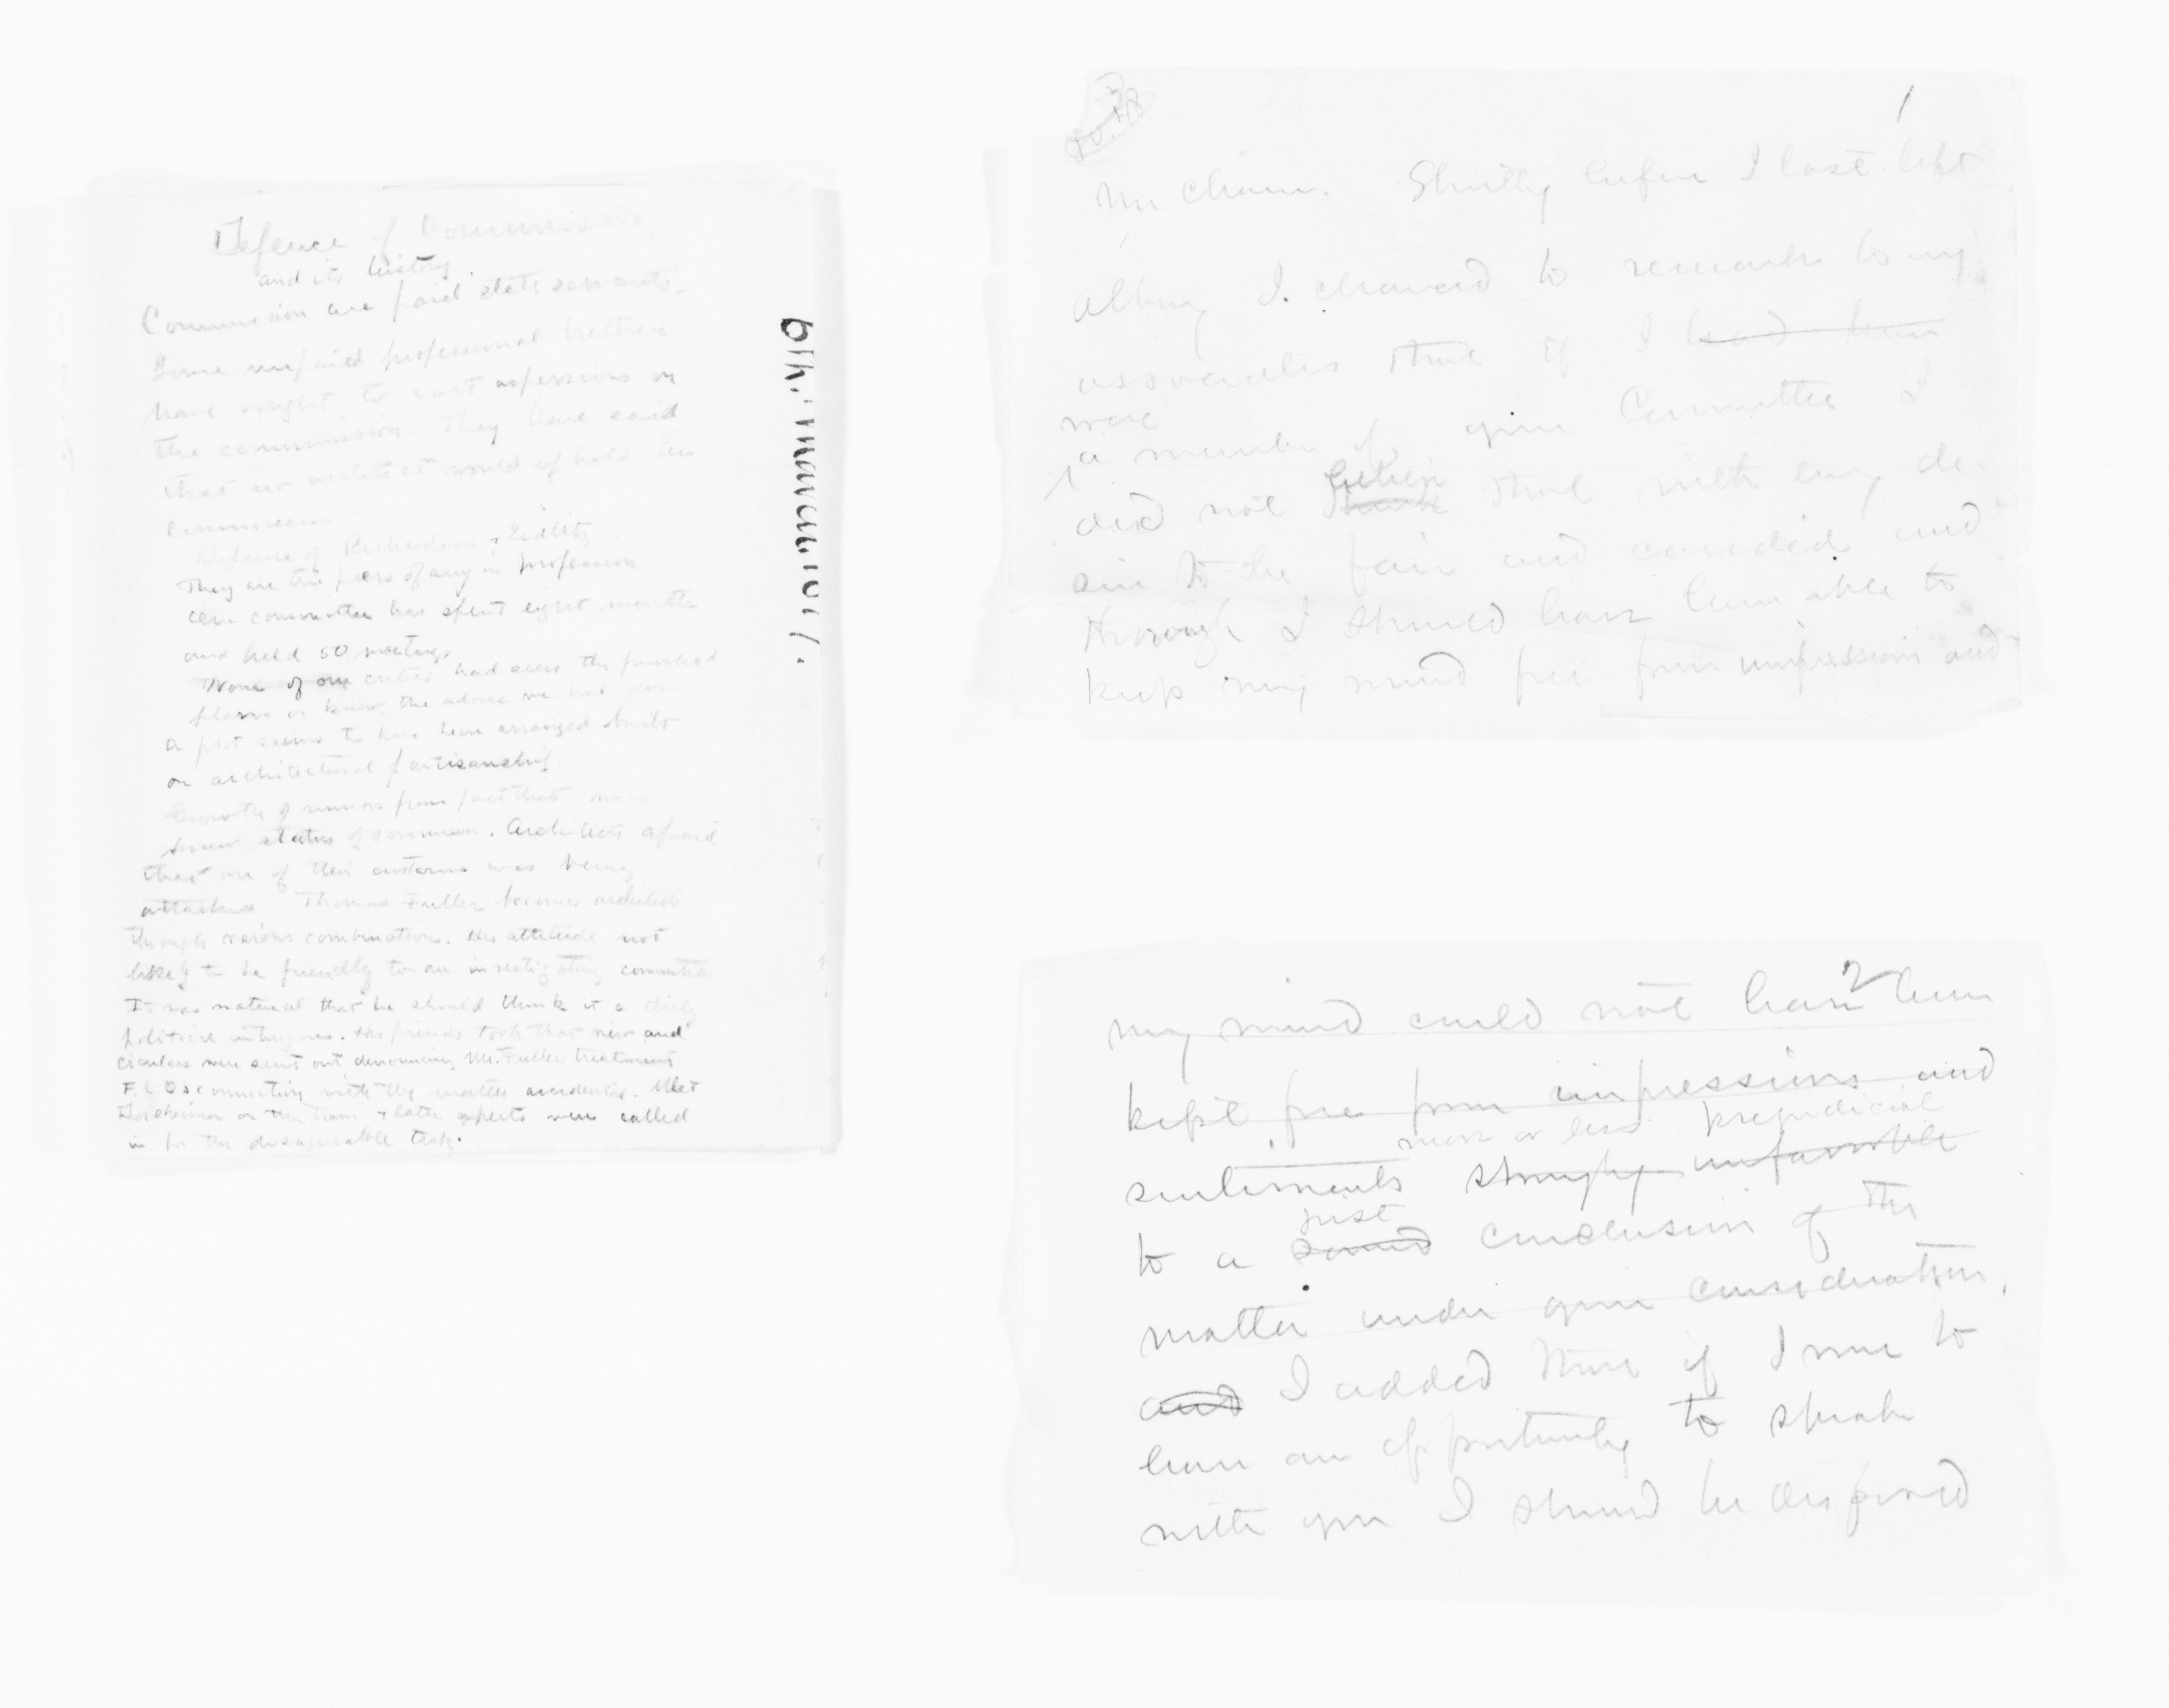 Defence of Commission
and its history.
Commission are paid state servants.
Some unpaid professional brethren
have sought to cast aspersions on
the commission. They have said
that no architect would uphold the
Commission
Defense of Richardson + Eidlitz
They are the peers of any in profession
committee has spent eight months
and held 50 meetings
None of our critics had seen the finished
plans or knew the advice we had given
a plot seems to have been arranged built
on architectural partisanship.
Growth of rumors from fact that
know status of commission. Architects afraid
that one of their customs was being
attacked. Thomas Fuller becomes architect
through various combinations. His attitude not
likely to be friendly to an investigating committee
It was natural that he should think it a
political intrigue. His friends took that view and
circulars were sent out denouncing Mr. Fullers treatment
F. L. O's connection with the matter accidental.
Dorsheimer & later experts were called
in for the disagreeable task.
6th. March. 1877.
1
Mr Chairn. Shortly before I last left
Albany I chanced to remark to my
associates that if I had been
were
a member of your Committee I
believe
did not think that with every de-
sire to be fair and candid and
thorough I should have been able to
keep my mind free from impressions and
2
my mind could not have been
kept free from impressions and
more or less prejudicial
sentiments strongly unfavorable
just
to a sound conclusion of the
matter under your consideration,
and I added that if I were to
have an opportunity to speak
with you I should be disposed